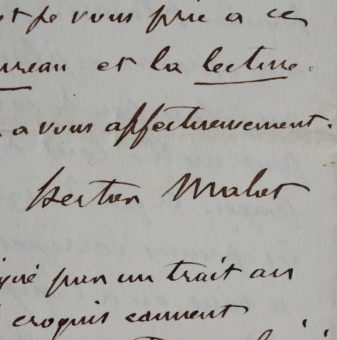 et je vous prie a ce
ureau et la lecture.
a vous affectueusement.
Hector Malot
iqué par un trait au
croquis